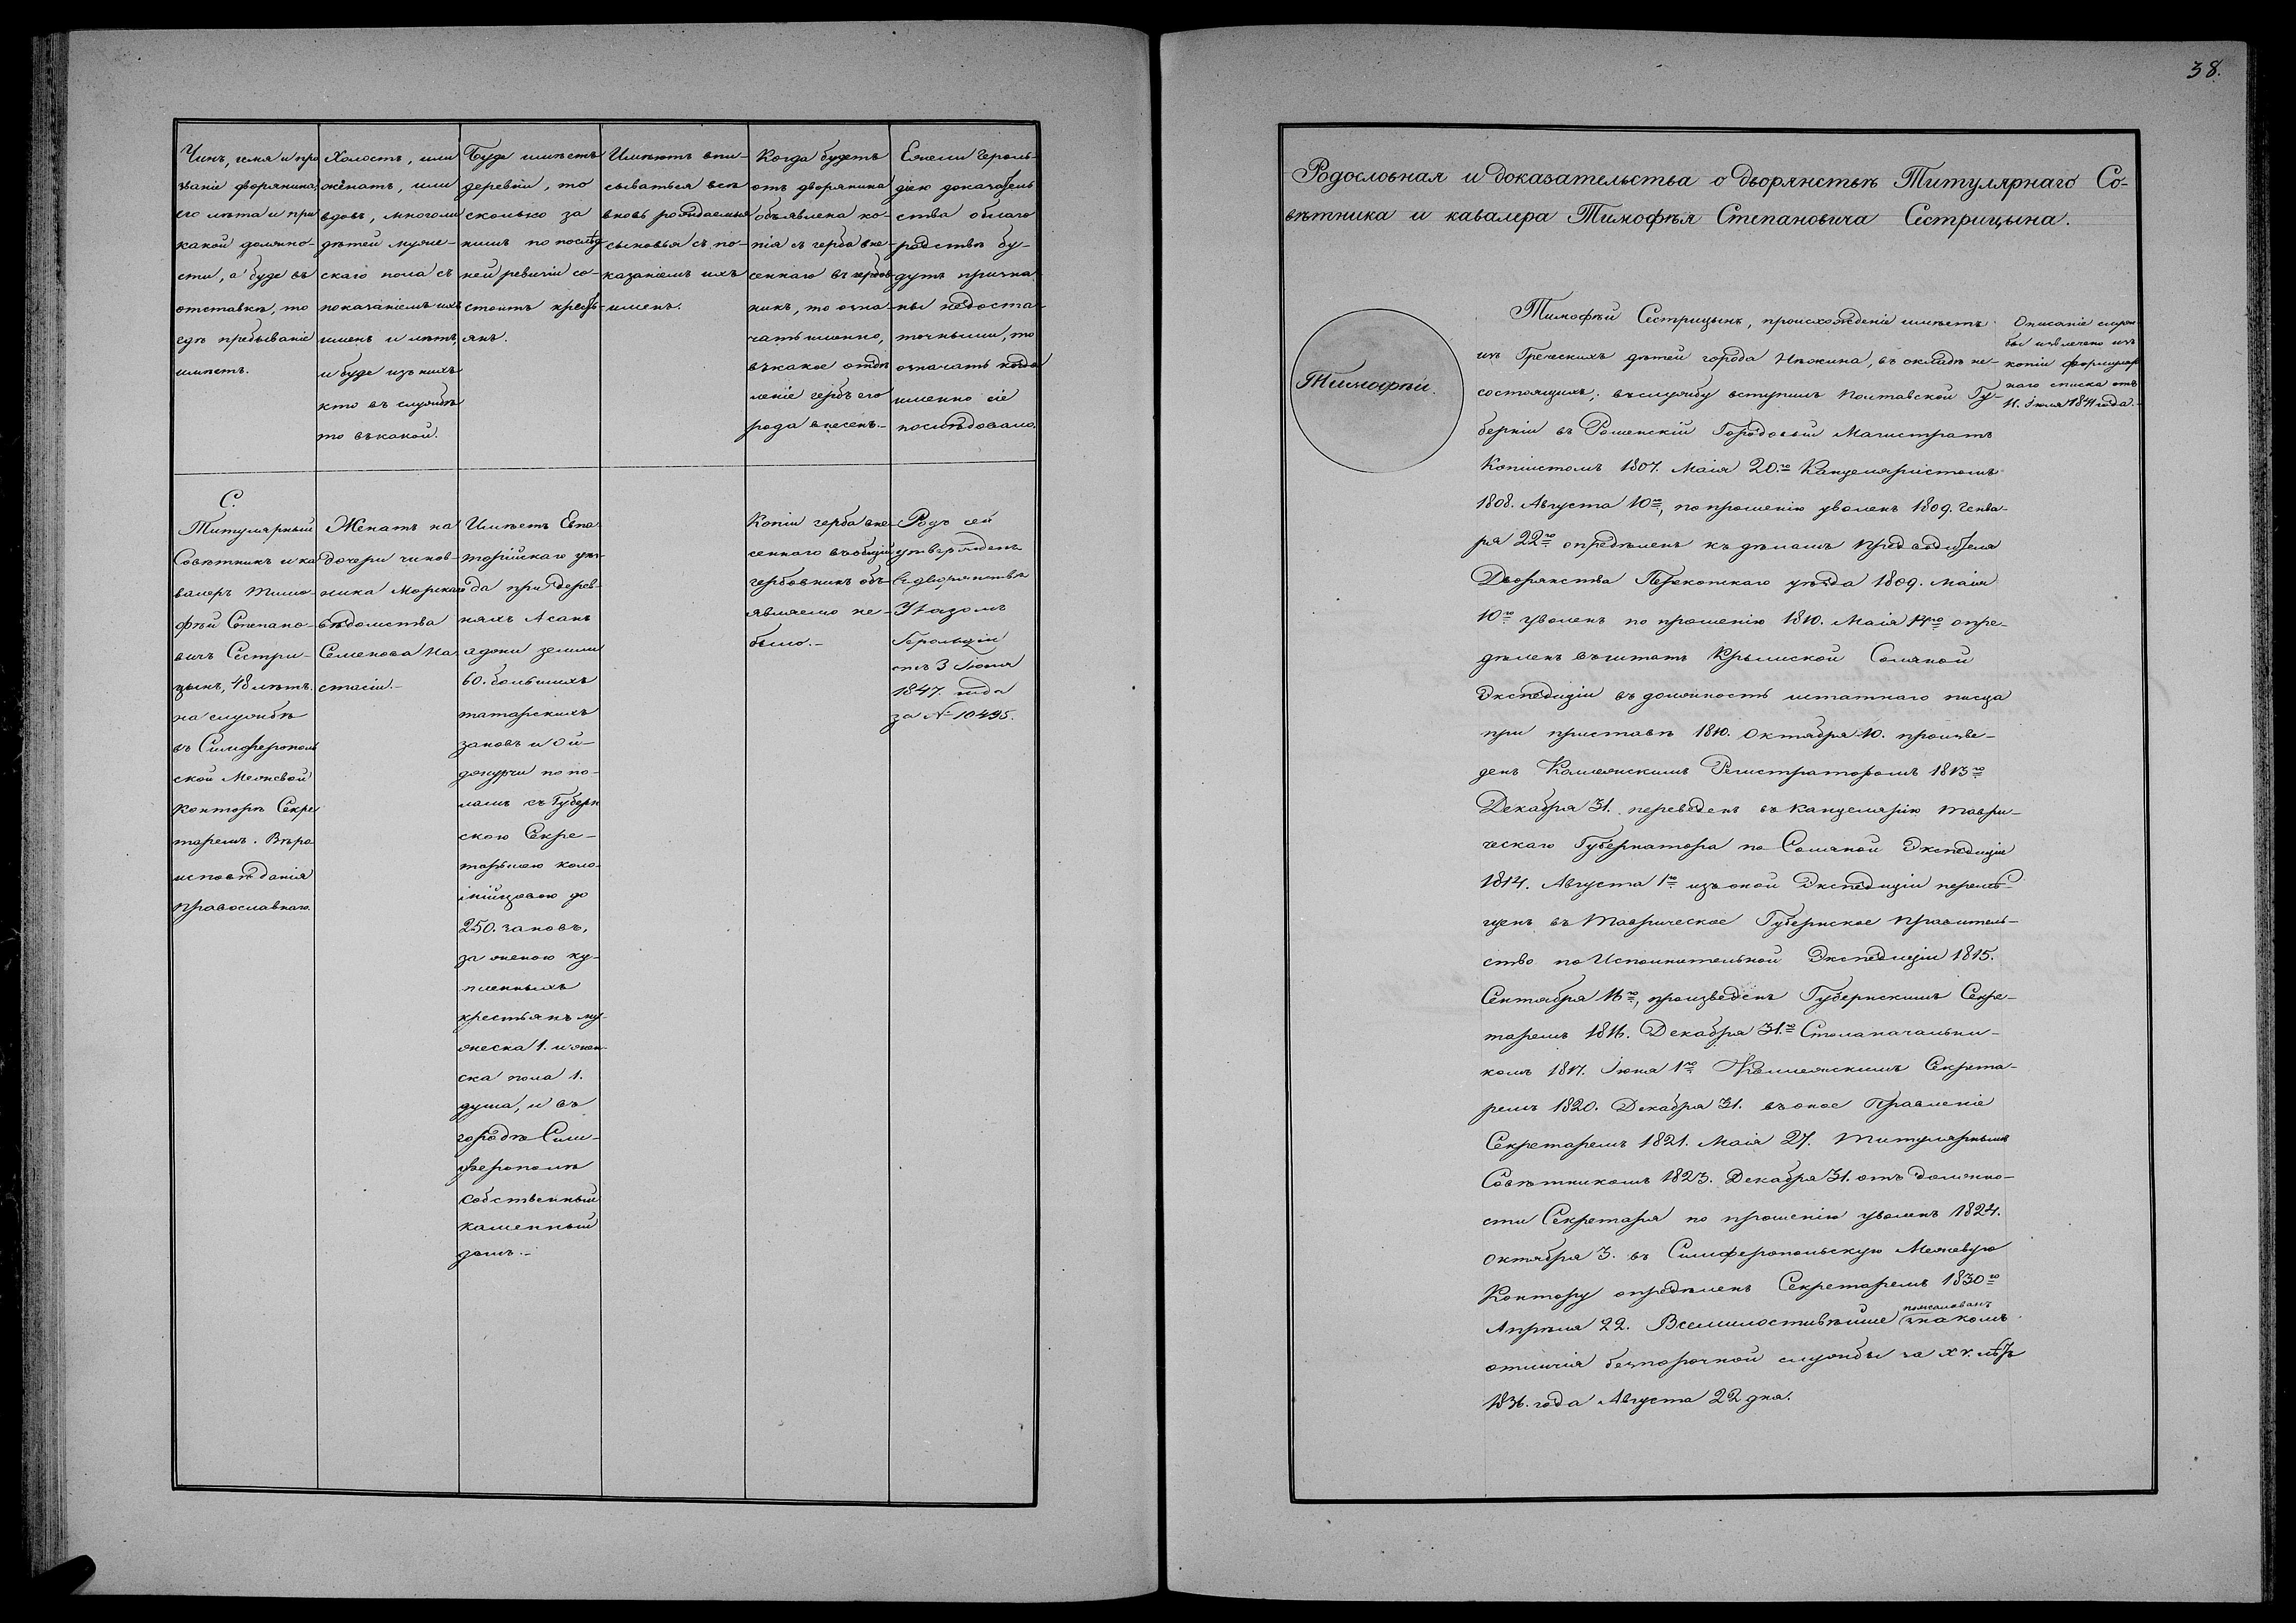 38.
Чинъ, имя и про
званіе дворянина,
его лѣта и при
какой должно-
сти, а буде въ
отставкѣ, то
гдѣ пребываніе
имѣетъ.
Холостъ, или
женатъ, или
вдовъ, многоли
дѣтей муже-
скаго пола съ
показаніемъ ихъ
именъ и лѣтъ,
и буде изъ нихъ
кто въ службѣ
то въ какой.
Буде имѣетъ
деревни, то
сколько за
нимъ по послѣд
ней ревизіи со-
стоитъ кресть-
янъ.
Имѣютъ впи-
сываться всѣ
вновь рождаемые
сыновья съ по-
казаніемъ ихъ
именъ.
Когда будетъ
отъ дворянина
объявлена ко-
пія съ герба вне-
сеннаго въ гербов
никъ, то озна-
чать именно,
въ какое отдѣ
леніе гербъ его
рода внесенъ.-
Ежели Героль-
діею доказатель
ства о благо
родствѣ бу-
дутъ призна
ны недоста-
точными, то
означать когда
именно сіе
послѣдовало.
С.
Титулярный
Совѣтникъ и ка
валеръ Тимо-
фѣй Степано-
вичъ Сестри-
цынъ, 48 лѣтъ.
на службѣ
въ Симферополь
ской Межевой
Конторѣ Секре
таремъ. Вѣро
исповѣданія
православнаго.
Женатъ на
дочери чинов-
ника Морскаго
вѣдомства
Семенова На
стасіи.-
Имѣетъ Евпа
торійскаго уѣз-
да при дерев-
няхъ Асанъ
аджи земли
60. большихъ
татарскихъ
зановъ и Ой-
джурчи по по-
ламъ съ Губерн
скою Секре-
таршею коло-
250. зановъ,
за женою ку-
пленныхъ
крестьянъ му-
жеска 1. и жен-
ска пола 1.
душа, и въ
городѣ Сим-
ферополѣ
собственный
каменный
домъ.-
Копіи герба вне-
сеннаго въ общій
гербовникъ объ-
являемо не-
было.-
Родъ сей
утвержденъ
въ дворянствѣ
Указомъ
Герольдіи
отъ 3 Іюня
1847. года
за № 10495.
Родословная и доказательства о дворянствѣ Титулярнаго Со-
вѣтника и кавалера Тимофѣя Степановича Сестрицына.
Тимофѣй.
Тимофѣй Сестрицынъ, происхожденіе имѣетъ
изъ Греческихъ дѣтей города Нѣжина, въ окладѣ не-
состоящихъ; въ службу вступилъ Полтавской Гу-
берніи въ Роменскій Городовый Магистратъ
Копіистомъ 1807. Маія 20.го Канцеляристомъ
1808. Августа 10го, по прошенію уволенъ 1809. Генва-
ря 22го опредѣленъ къ дѣламъ Предводителя
Дворянства Перекопскаго уѣзда 1809. Маія
10го уволенъ по прошенію 1810. Маія го опре-
дѣленъ въ штатъ Крымской Соляной
Экспедиціи въ должность штатнаго писца
при приставѣ 1810. Октября 10. произве-
денъ Коллежскимъ Регистраторомъ 1813го
Декабря 31. переведенъ въ Канцелярію Таври-
ческаго Губернатора по Соляной Экспедиціи
1814. Августа 1го изъ оной Экспедиціи перемѣ-
щенъ въ Таврическое Губернское Правитель-
ство по Исполнительной Экспедиціи 1815.
Сентября 16го, произведенъ Губернскимъ Секре-
таремъ 1816. Декабря 31.го Столоначальни-
комъ 1817. Іюня 1го Коллежскимъ Секрета-
ремъ 1820. Декабря 31. въ оное Правленіе
Секретаремъ 1821. Маія 27. Титулярнымъ
Совѣтникомъ 1823. Декабря 31. отъ должно-
сти Секретаря по прошенію уволенъ 1824.
Октября 3. въ Симферопольскую Межевую
Контору опредѣленъ Секретаремъ 1830го
Апрѣля 22. Всемилостивѣйше пожалованъ знакомъ
отличія безпорочной службы за XV. лѣтъ
1836. года Августа 22 дня.
Описаніе служ
бы извлечено изъ
копіи формуляр
наго списка отъ
11. Іюля 1841 года.-